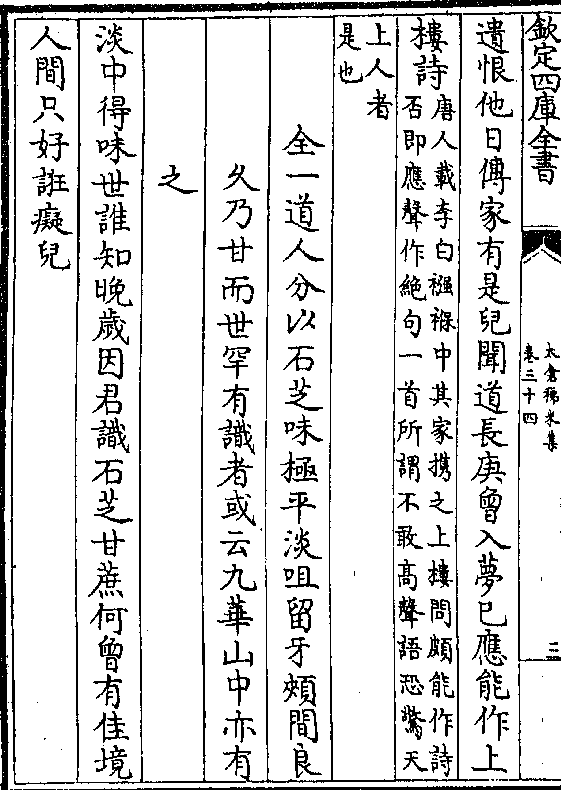 欽定四庫全書
太倉稊米集
卷三十四
二
遺恨他日傳家有是兒聞道長庚曾入夢已應能作上
樓詩
唐人載李白襁褓中其家携之上樓問頗能作詩
否即應聲作絶句一首所謂不敢高聲語恐驚天
上人者
是也
全一道人分以石芝味極平淡咀留牙頰間良
久乃甘而世罕有識者或云九華山中亦有
之
淡中得味世誰知晚歲因君識石芝甘蔗何曾有佳境
人間只好誑癡兒